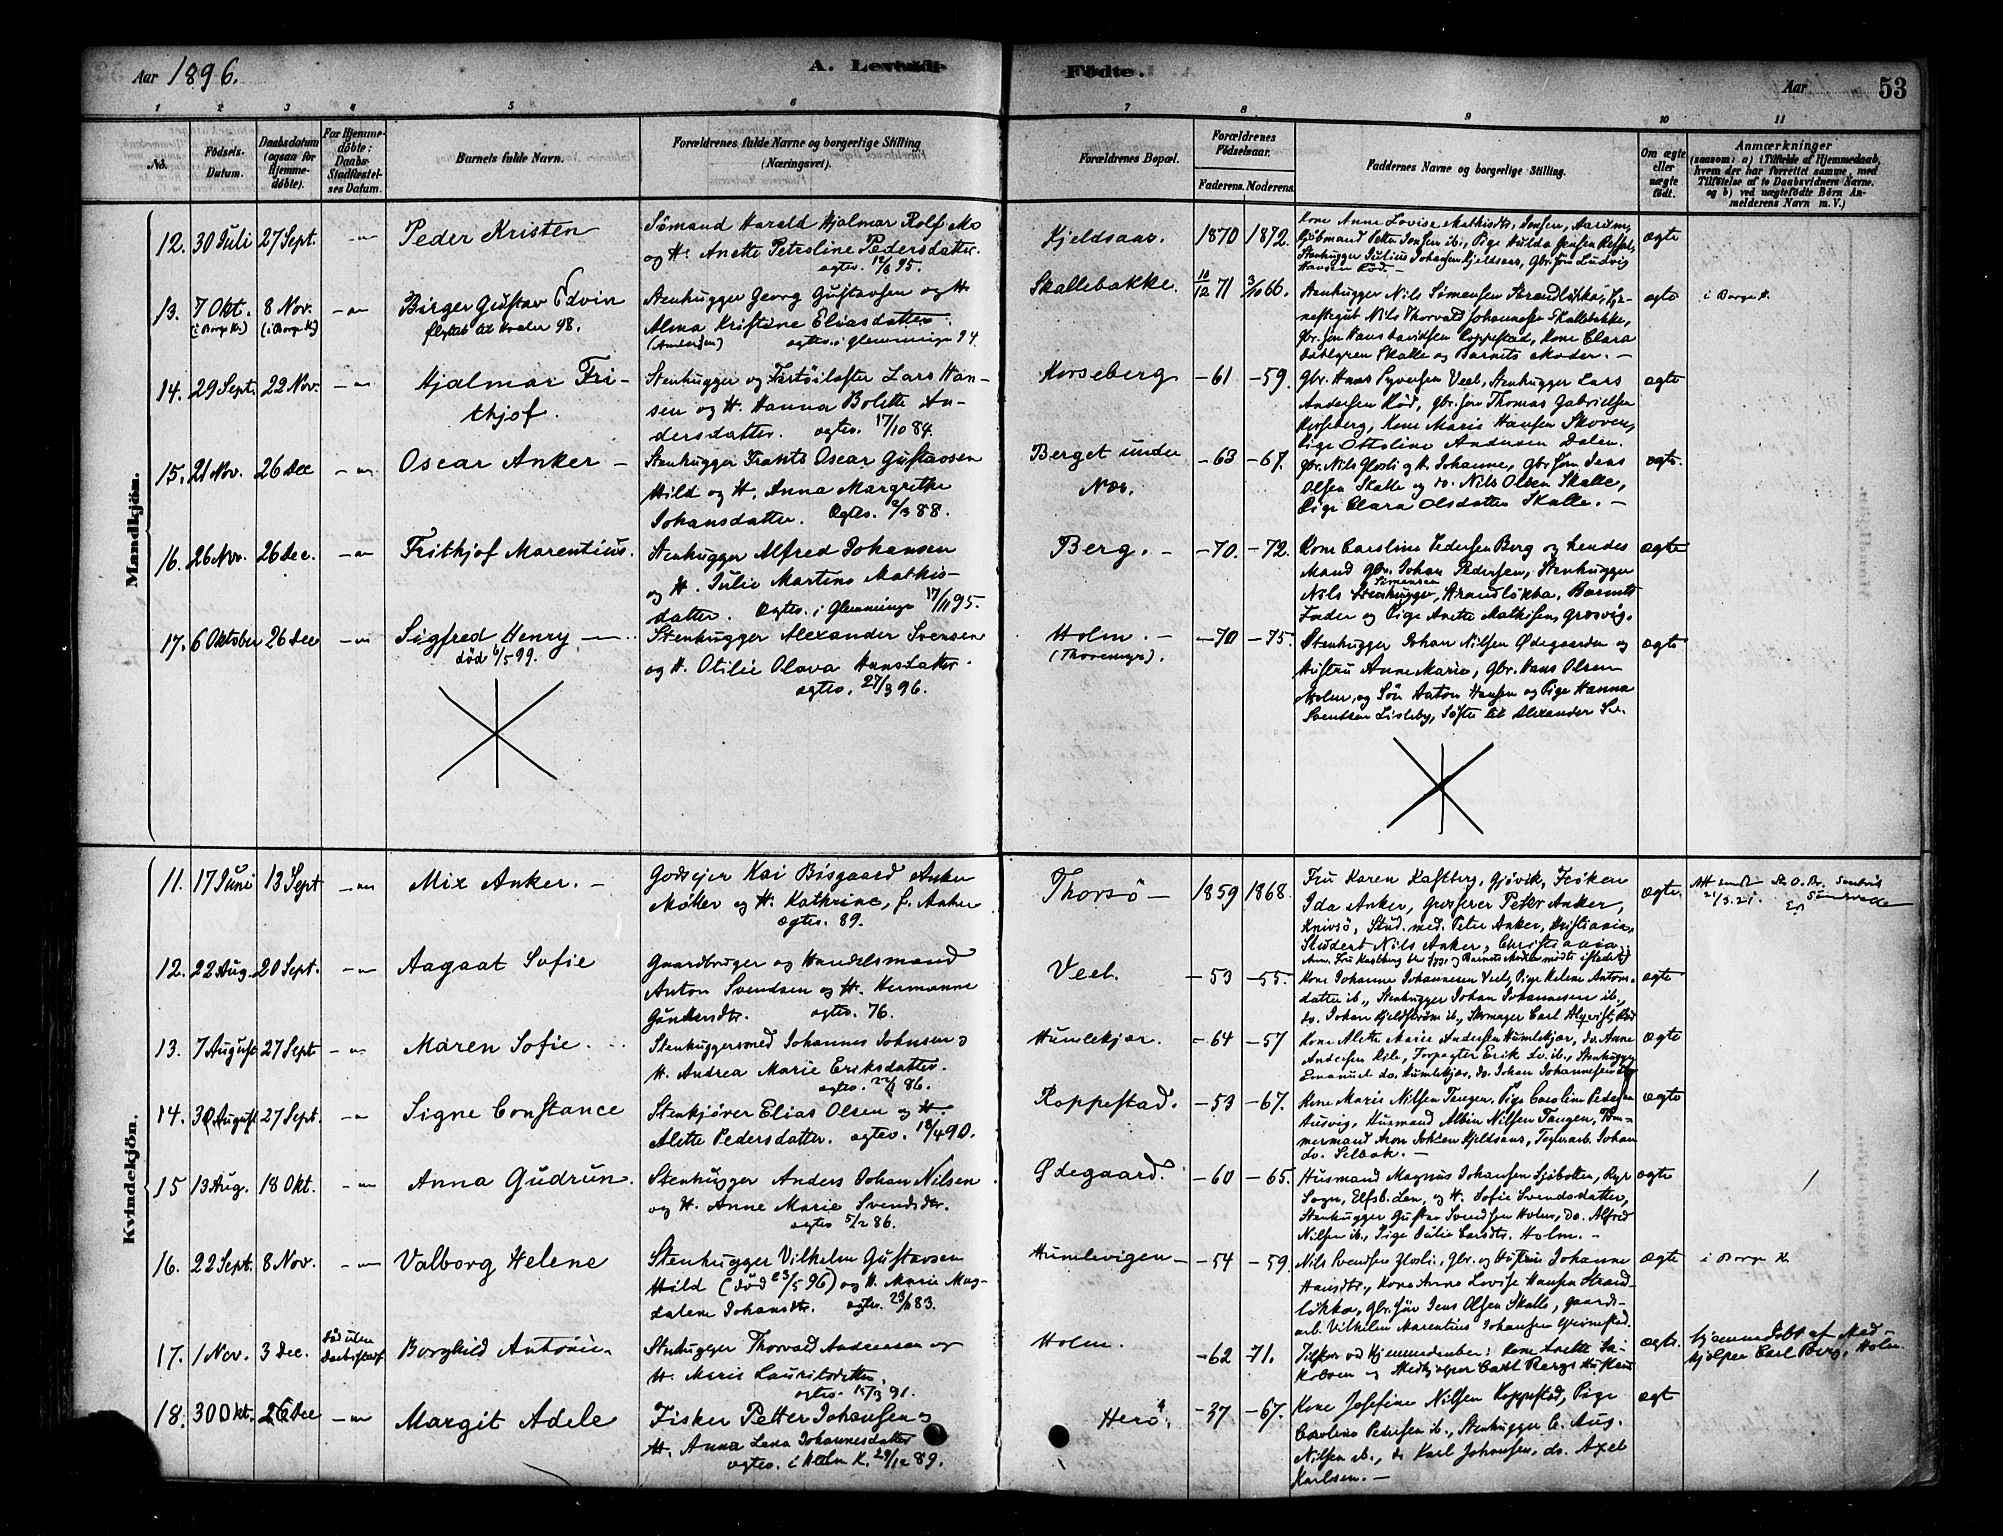 Aar 1896.
A. Levende
Fødte.
Aar
53
1 2 3 4 5 6 7 8 9 10 11
No.
Fødsels-
Datum.
Daabsdatum
(ogsaa for
Hjemme-
døbte).
For Hjemme-
døbte:
Daabs-
Stadfæstel-
ses Datum.
Barnets fulde Navn.
Forældrenes fulde Navne og borgerlige Stilling
(Næringsvei).
Forældrenes Bopæl.
Forældrenes
Fødselsaar.
Faderens. Moderens.
Faddernes Navne og borgerlige Stilling.
Om ægte
eller
uægte
født.
Anmærkninger
(saasom: a) i Tilfælde af Hjemmedaab,
hvem der har forrettet samme, med
Tilføielse af to Daabsvidners Navne.
og b) ved uægtefødte Børn An-
melderens Navn m. V.)
Mandkjøn.
12. 30 Juli 27 Sept. -"- Peder Kristen
Sømand Harald Hjalmar Rolf Mo
og H. Anette Petesline Pedersdatter.
ægtev. 12/6 95.
Kjeldsaas. 1870 1872.
Kone Anne Lovise Mathisdtr, Jensen, Aarum,
Gjøbmand Petter Jonsen ib., Pige Hulda Jensen
Stenhugger Julius Johansen Kjeldsaas, Gbr. søn Ludvig
Hansen Rød. -
ægte
13. 7 Okt. 8 Nov. -"- Birger Gustav Edvin
(i Borge K.) (i Borge K)
98.
Stenhugger Georg Gustavsen og H
Alma Kristine Eliasdatter.
ægtev. i Glemminge 94.
Skallebakke. 10/12 71 3/10 66.
Stenhugger Nils Simensen Strandløkka, Tje-
nestegut Nils Thorvald Johannesen Skallebakke,
Gbr. søn Hans Davidsen Roppestad, Kone Clara
Dahlgren Skalle og Barnets Moder. -
ægte i Borge K.
14. 29 Sept. 22 Nov. -"- Hjalmar Fri-
thjof.
Stenhugger og Fartøilofter Lars Han-
sen og H. Hanna Bolette An-
dersdatter. ægtev. 17/10 84.
Korseberg -61 -59.
Gbr. Hans Syversen Veel, Stenhugger Lars
Andersen Rød, Gbr. søn Thomas Gabrielsen
Korseberg, Kone Marie Hansen Skoven,
Pige Ottoline Andersen Dalen.
ægte
15. 21 Nov. 26 Dec -"- Oscar Anker -
Stenhugger Frants Oscar Gustavsen
Hild og H. Anna Margrethe
Johansdatter. Ægtev. 2/3 88.
Berget under
Næs.
-63 -67.
Gbr. Nils Glosli og H. Johanne, Gbr. søn Jens
Olsen Skalle og do. Nils Olsen Skalle,
Pige Clara Olsdatter Skalle. -
ægte.
16. 26 Nov. 26 Dec. -"- Frithjof Marentius.
Stenhugger Alfred Johansen
og H. Julie Martine Mathis-
datter. Ægtev. i Glemminge 17/11 95.
Berg. - -70. -72.
Kone Caroline Pedersen Berg og hendes
Mand Gbr. Johan Pedersen, Stenhugger
Simensen
Nils Stenhugger, Strandløkka, Barnets
Fader og Pige Anette Mathisen, Græsvig.
ægte
17. 6 Oktober 26 Dec -"- Sigfred Henry -
død 6/5 99.
Stenhugger Alexander Svensen
og H. Otilie Olava Hansdatter.
ægtev. 27/3 96.
Holm. -
(Thovemyr).
-70 -75.
Stenhugger Johan Nilsen Ødegaarden og
Hustru Anne Marie, Gbr. Hans Olsen
Holm, og Søn Anton Hansen og Pige Hanna
Svendsen Lisleby, Søster til Alexander Sv.
ægte
Kvindekjøn.
11. 17 Juni 13 Sept -"- Mix Anker. -
Godseier Kai Bisgaard Anker
Møller og H. Kathrine, f. Anker
Ægtev. 89.
Thorsø - 1859 1868.
Fru Karen Kastberg, Gjøvik, Frøken
Ida Anker, Grosserer Peter Anker,
Knivsö, Stud. med. Peter Anker, Kristiania,
Student Nils Anker, Christiania.
Anm. Fru Kastberg blev syg, og Barnets Moder mødte istedetf.
ægte. Att. sendt
21/3.21.
12. 22 Aug. 20 Sept. -"- Aagaat Sofie
Gaardbruger og Handelsmand
Anton Svendsen og H. Hermanne
Gundersdtr. ægtev. 76.
Veel. -53 -55.
Kone Johanne Johannesen Veel, Pige Helene Antons-
datter ib., Stenhugger Johan Johannesen ib.,
do. Johan Kjeldstrøm ib., Skomager Carl Alqvist,
ægte
13. 7 August 27 Sept -"- Maren Sofie.
Stenhuggersmed Johannes Johnsen og
H. Andrea Marie Eriksdatter.
ægtev. 86.
Humlekjær. -64 -57
Kone Alette Marie Andersen Humlekjær, do. Anne
Andersen Kile, Forpagter Erik do. ib., Stenhugger
Emanuel do. Humlekjær, do. Johan Johannesen
ægte
14. 30 August 27 Sept. -"- Signe Constance
Stenkjører Elias Olsen og H.
Alette Pedersdatter. ægtev. 18/4 90.
Roppestad. -53 -67.
Kone Marie Nilsen Tangen, Pige Caroline Pedersen
Ausvig, Husmand Albin Nilsen Tangen, Tøm-
mermand Aron Johsen Kjeldsaas, Teglarb. Johan
do. Selbak. -
ægte
15 13 Aug. 18 Okt. -"- Anna Gudrun.
Stenhugger Anders Johan Nilsen
og H. Anne Marie Svendsdtr.
ægtev 5/12 86.
Ødegaard. -60 -65.
Husmand Magnus Johansen Sjøbotten, Ryr
Sogn, Elfsb. Len, og H. Sofie Svendsdatter,
Stenhugger Gustav Svendsen Holm, do. Alfred
Nilsen ib., Pige Julie Larsdtr. Holm. -
ægte
16. 22 Sept. 8 Nov. -"- Valborg Helene
Stenhugger Vilhelm Gustavsen
Hild (død 23/5 96) og H. Marie Mag-
dalene Johansdtr. ægtev. 83.
Humlevigen - -54 -59.
Nils Svendsen Glosli, Gbr. og Hustru Johanne
Hansdtr., Kone Anne Lovise Hansen Strand-
løkka, Gbr. søn Jens Olsen Skalle, Gaards-
arb. Vilhelm Marentius Johansen Grimstad.
ægte i Borge K.
17. 1 Nov. 3 Dec. Død uden
Daabsstadf. Borghild Antonie.
Stenhugger Thorvald Andreassen og
H. Marie Lauritsdatter.
ægtev. 15/3 91.
Holm. -62 71.
Kone Anette
og Medhjælper Carl Bergs Hustru
ægte. Hjemmedøbt af Med-
hjælper Carl Berg, Holm.
18. 30 Okt. 26 Dec -"- Margit Adele
Fisker Petter Johansen og
H. Anna Lena Johannesdatter
ægtev. i K. 29/12 89.
Herö. -37 -67.
Kone Josefine Nilsen Roppestad, Pige
Caroline Pedersen ib., Stenhugger C. Aug.
Nilsen ib., do Karl Johansen, do. Axel
Karlsen. -
ægt